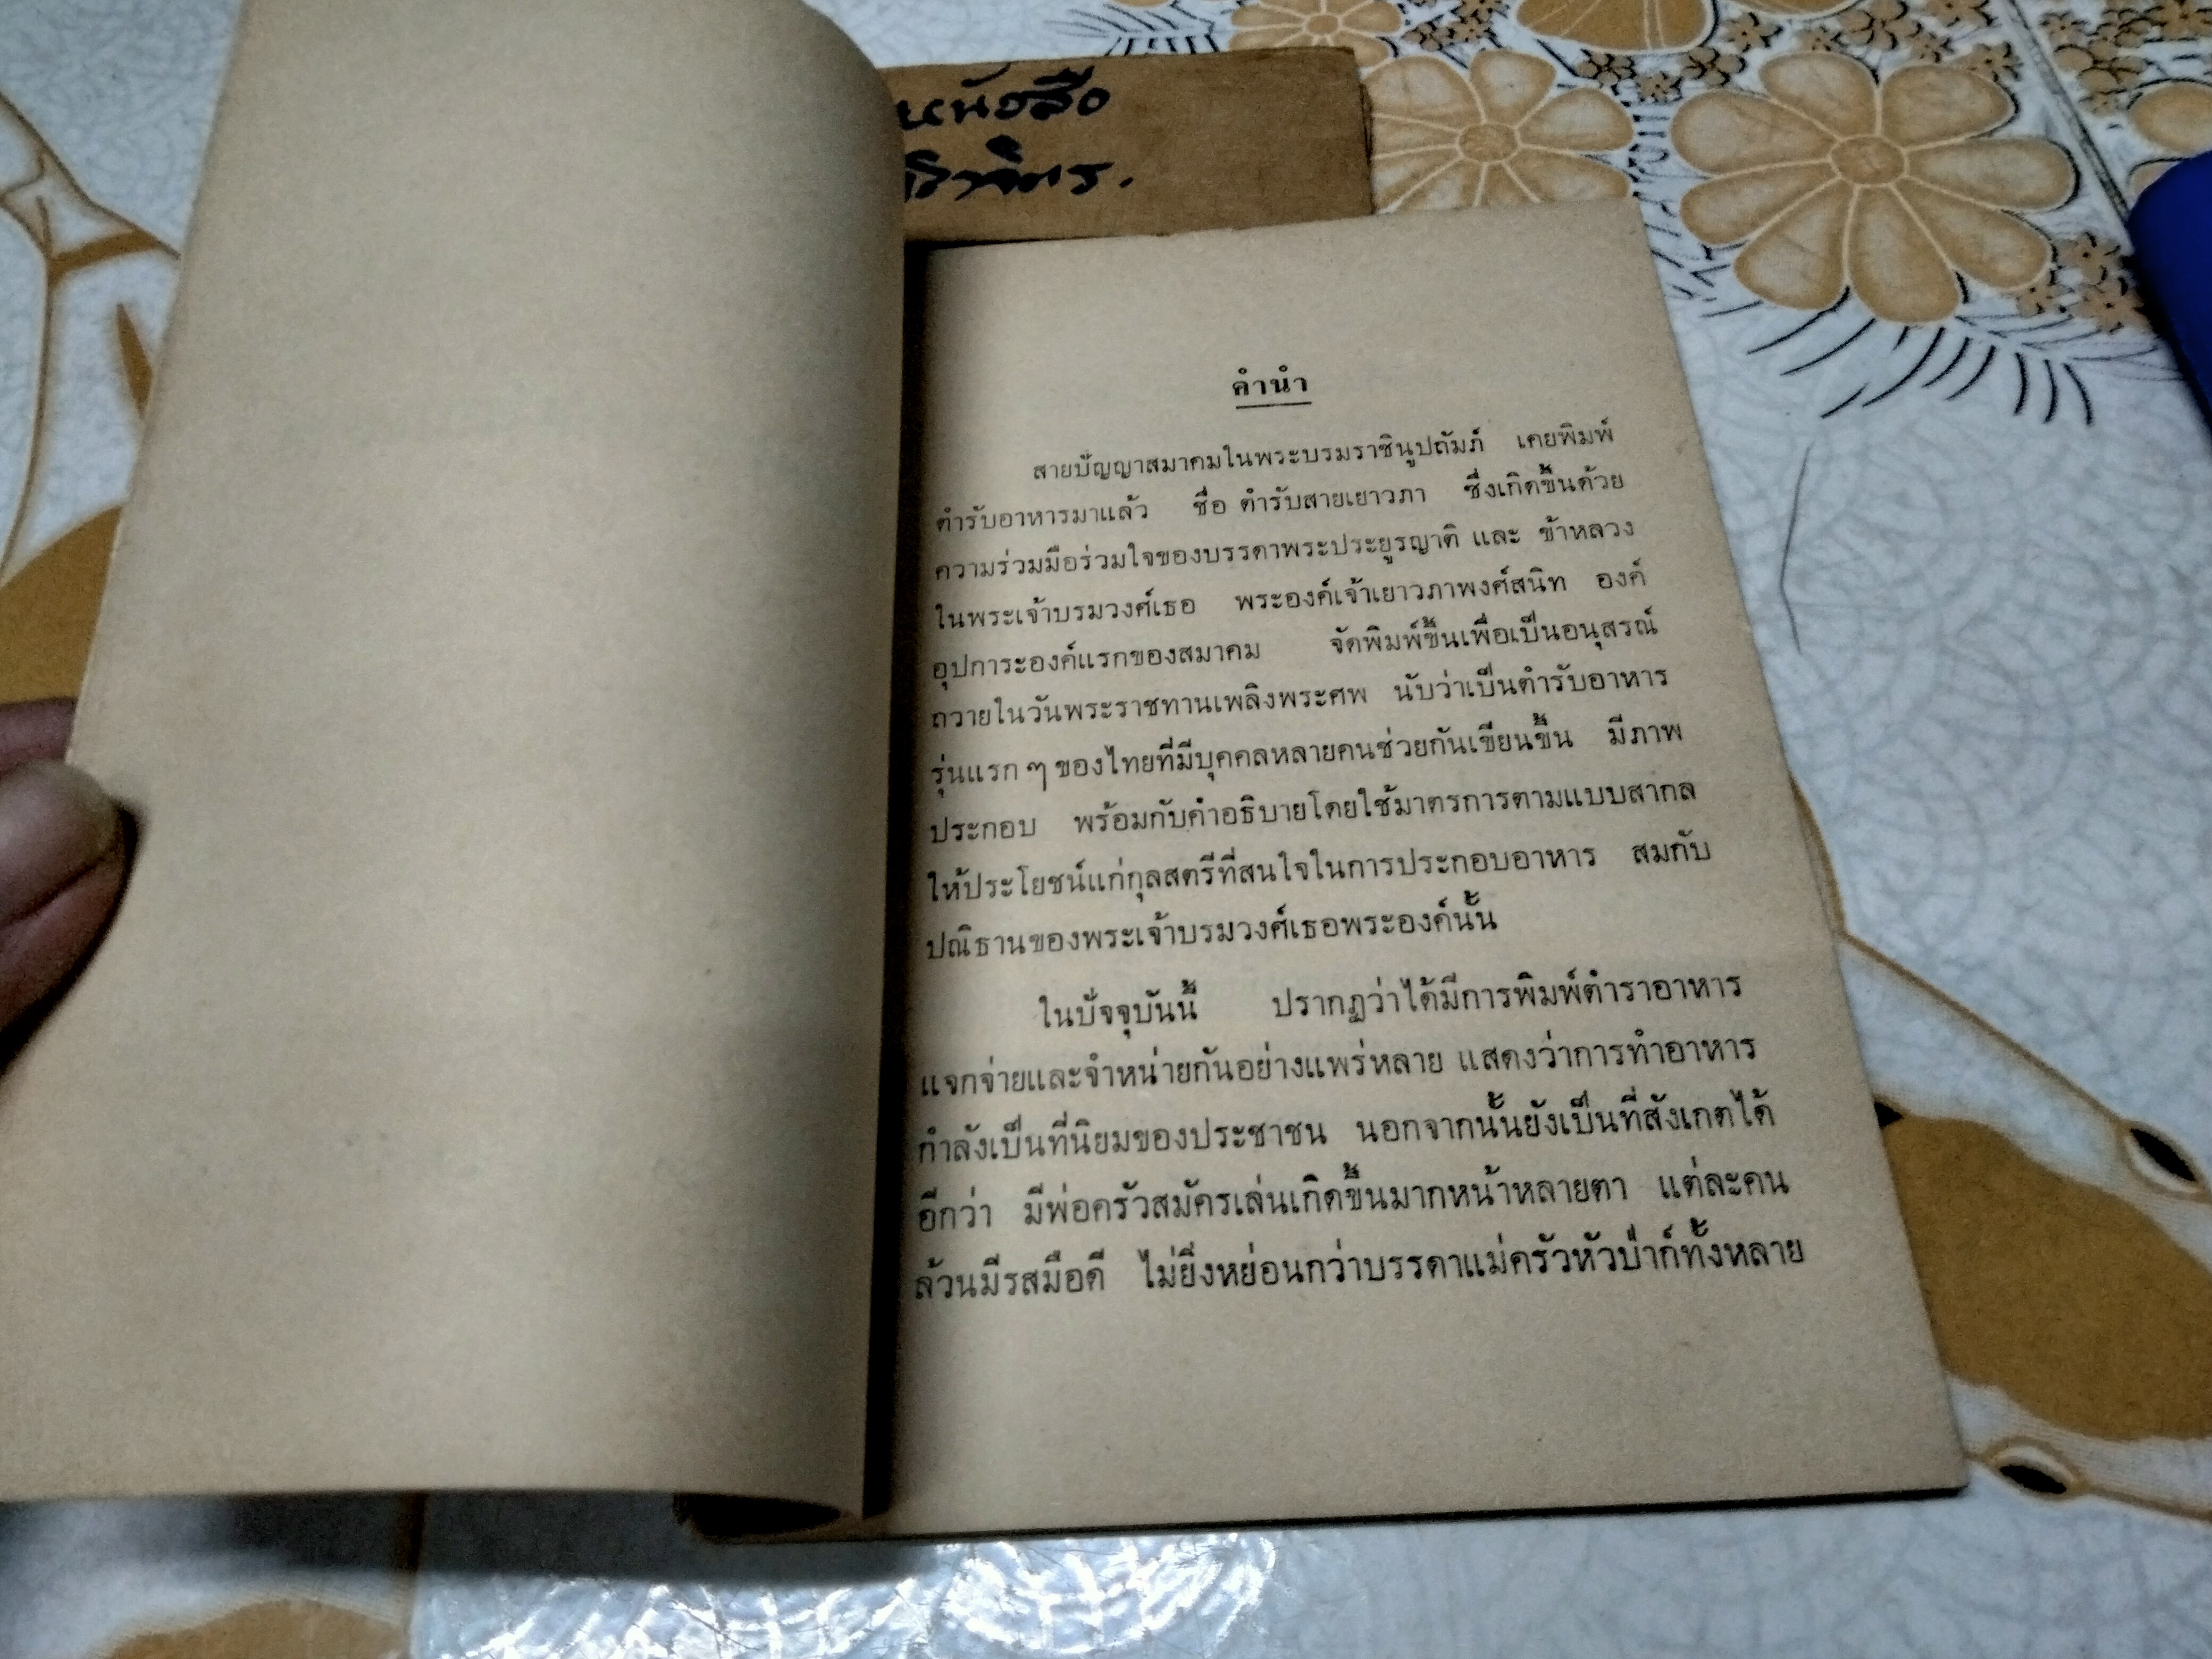 หนังสือ
จิตร.
คำนำ
สายปัญญาสมาคมในพระบรมราชินูปถัมภ์ เคยพิมพ์
ตำรับอาหารมาแล้ว ชื่อ ตำรับสายเยาวภา ซึ่งเกิดขึ้นด้วย
ความร่วมมือร่วมใจของบรรดาพระประยูรญาติ และ ข้าหลวง
ในพระเจ้าบรมวงศ์เธอ พระองค์เจ้าเยาวภาพงศ์สนิท องค์
อุปการะองค์แรกของสมาคม จัดพิมพ์ขึ้นเพื่อเป็นอนุสรณ์
ถวายในวันพระราชทานเพลิงพระศพ นับว่าเป็นตำรับอาหาร
รุ่นแรก ๆ ของไทยที่มีบุคคลหลายคนช่วยกันเขียนขึ้น มีภาพ
ประกอบ พร้อมกับคำอธิบายโดยใช้มาตรการตามแบบสากล
ให้ประโยชน์แก่กุลสตรีที่สนใจในการประกอบอาหาร สมกับ
ปณิธานของพระเจ้าบรมวงศ์เธอพระองค์นั้น
ในปัจจุบันนี้ ปรากฏว่าได้มีการพิมพ์ตำราอาหาร
แจกจ่ายและจำหน่ายกันอย่างแพร่หลาย แสดงว่าการทำอาหาร
กำลังเป็นที่นิยมของประชาชน นอกจากนั้นยังเป็นที่สังเกตได้
อีกว่า มีพ่อครัวสมัครเล่นเกิดขึ้นมากหน้าหลายตา แต่ละคน
ล้วนมีรสมือดี ไม่ยิ่งหย่อนกว่าบรรดาแม่ครัวหัวป่าก์ทั้งหลาย